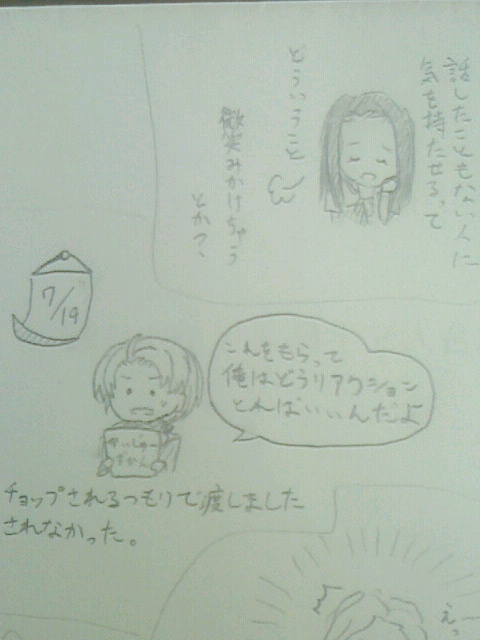 話したこともない人に
気を持たせるって
どういうこと
微笑みかけちゃう
とか?、
7/19
これをもらって
俺はどうリアクション
とればいいんだよ
かいじゅー
ずかん
チョップされるつもりで渡しました
されなかった。
えっ